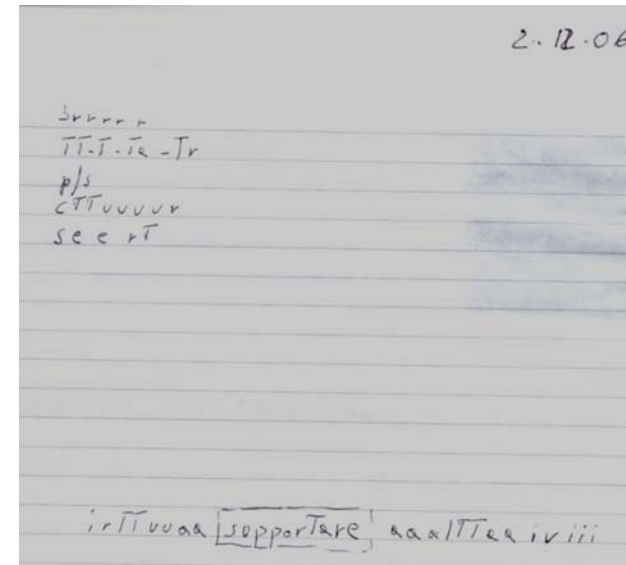 2.12.06
srrrr r
TT-T-Ta-Tr
p/s
cTTuuuur
see rT
irTTuuaa sopporTare aaalTTaa iviii